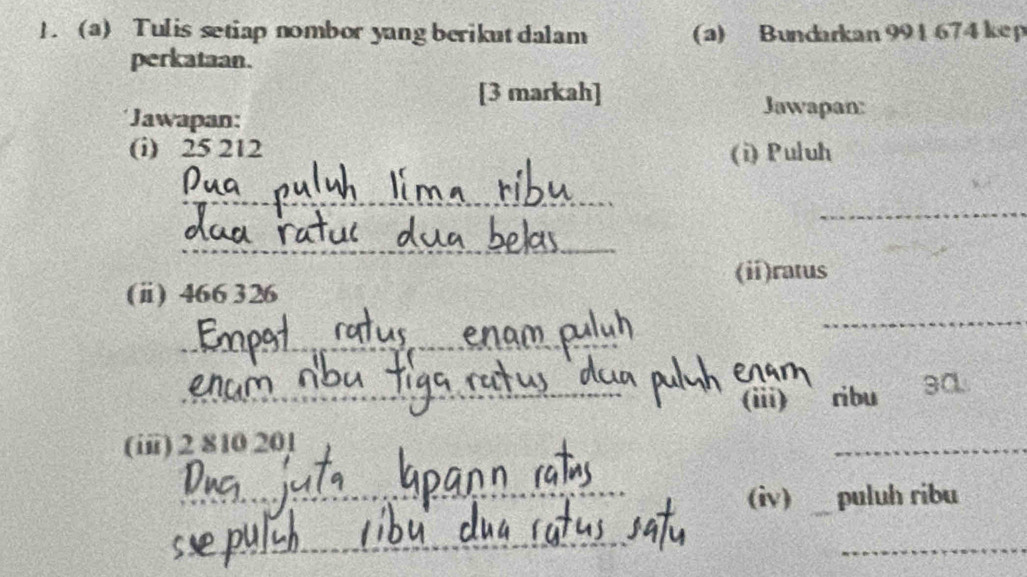 1. (a) Tulis setiap nombor yang berikut dalam
perkataan.
[3 markah]
Jawapan:
(i) 25 212
Dua puluh lima ribu
dua ratus dua belas
(ii) 466 326
Empat ratus enam puluh
enam ribu tiga ratus dua puluh enam
(iii) 2 810 201
Dua juta lapann ratus
sepuluh ribu dua ratus satu
(a) Bundarkan 991 674 kep
Jawapan:
(i) Puluh
(ii)ratus
(iii) ribu
(iv) _ puluh ribu